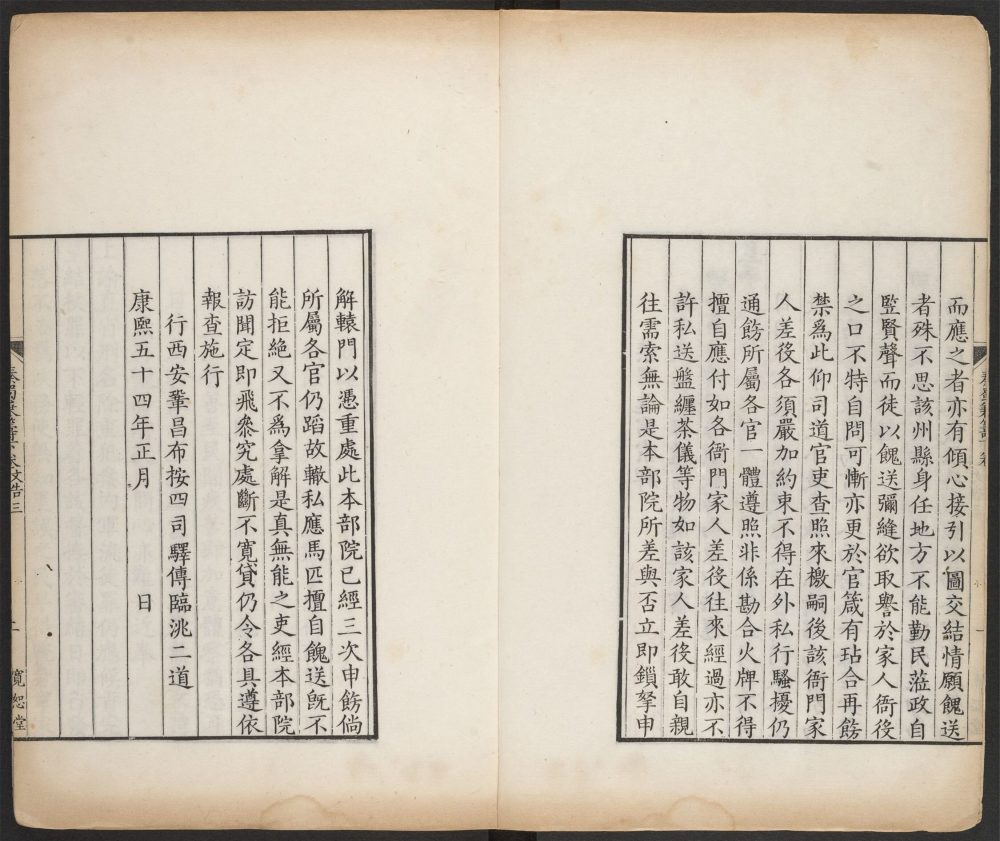 而應之者亦有傾心接引以圖交結情願餽送
者殊不思該州縣身任地方不能勤民蒞政自
監賢聲而徒以餽送彌縫欲取譽於家人衙役
之口不特自問可慚亦更於官箴有玷合再飭
禁爲此仰司道官吏查照來檄嗣後該衙門家
人差役各須嚴加約束不得在外私行騷擾仍
通飭所屬各官一體遵照非係勘合火牌不得
擅自應付如各衙門家人差役往來經過亦不
許私送盤纏茶儀等物如該家人差役敢自親
往需索無論是本部院所差與否立即鎖拏申
解轅門以憑重處此本部院已經三次申飭倘
所屬各官仍蹈故轍私應馬匹擅自餽送旣不
能拒絕又不爲拿解是真無能之吏經本部院
訪聞定即飛叅究處斷不寬貸仍令各具遵依
報查施行
行西安鞏昌布按四司驛傳臨洮二道
康熙五十四年正月 日
文告三
寬恕堂